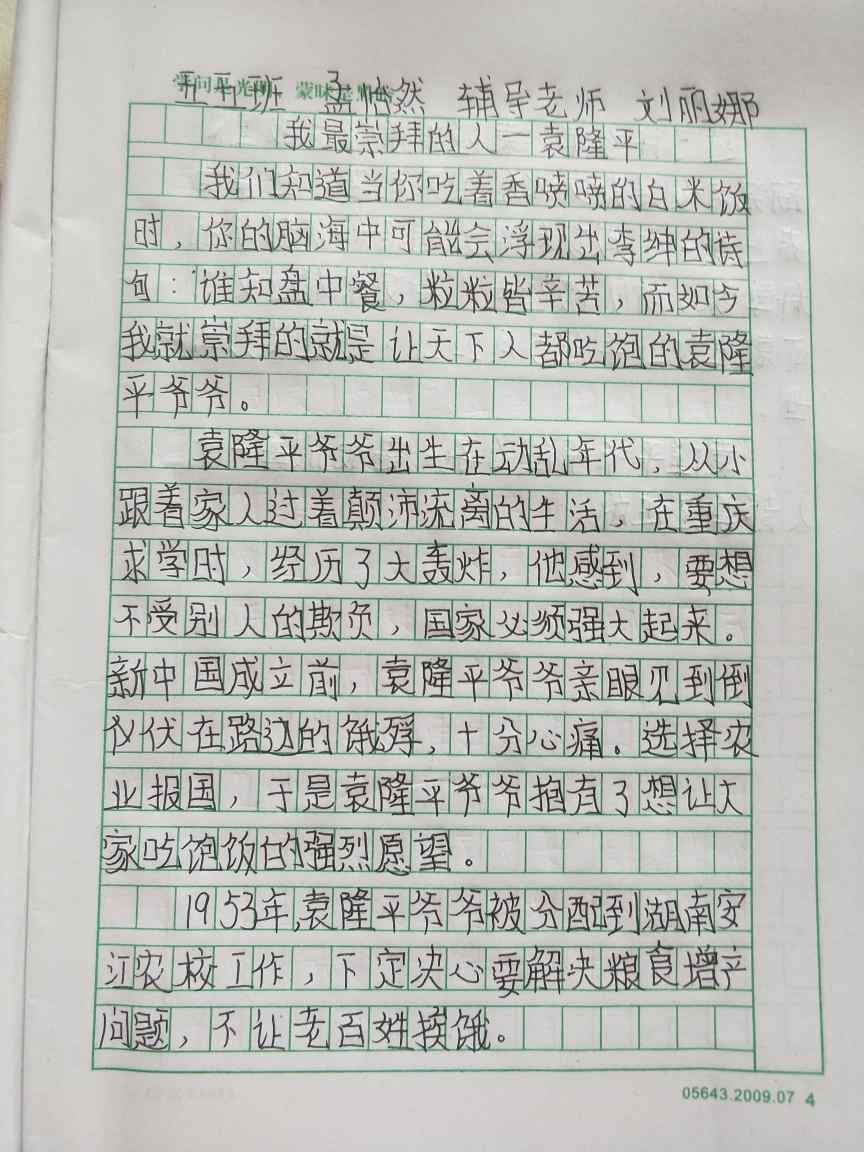 五五班 孟怡然 辅导老师 刘丽娜
我最崇拜的人一袁隆平
我们知道当你吃着香喷喷的白米饭
时，你的脑海中可能会浮现出李绅的诗
句：谁知盘中餐，粒粒皆辛苦，而如今
我就崇拜的就是让天下人都吃饱的袁隆
平爷爷。
袁隆平爷爷出生在动乱年代，从小
跟着家人过着颠沛流离的生活，在重庆
求学时，经历了大轰炸，他感到，要想
不受别人的欺负，国家必须强大起来。
新中国成立前，袁隆平爷爷亲眼见到倒
伏在路边的饿殍，十分心痛。选择农
业报国，于是袁隆平爷爷抱有了想让大
家吃饱饭的强烈愿望。
1953年，袁隆平爷爷被分配到湖南安
江农校工作，下定决心要解决粮食增产
问题，不让老百姓挨饿。
05643.2009.07 4